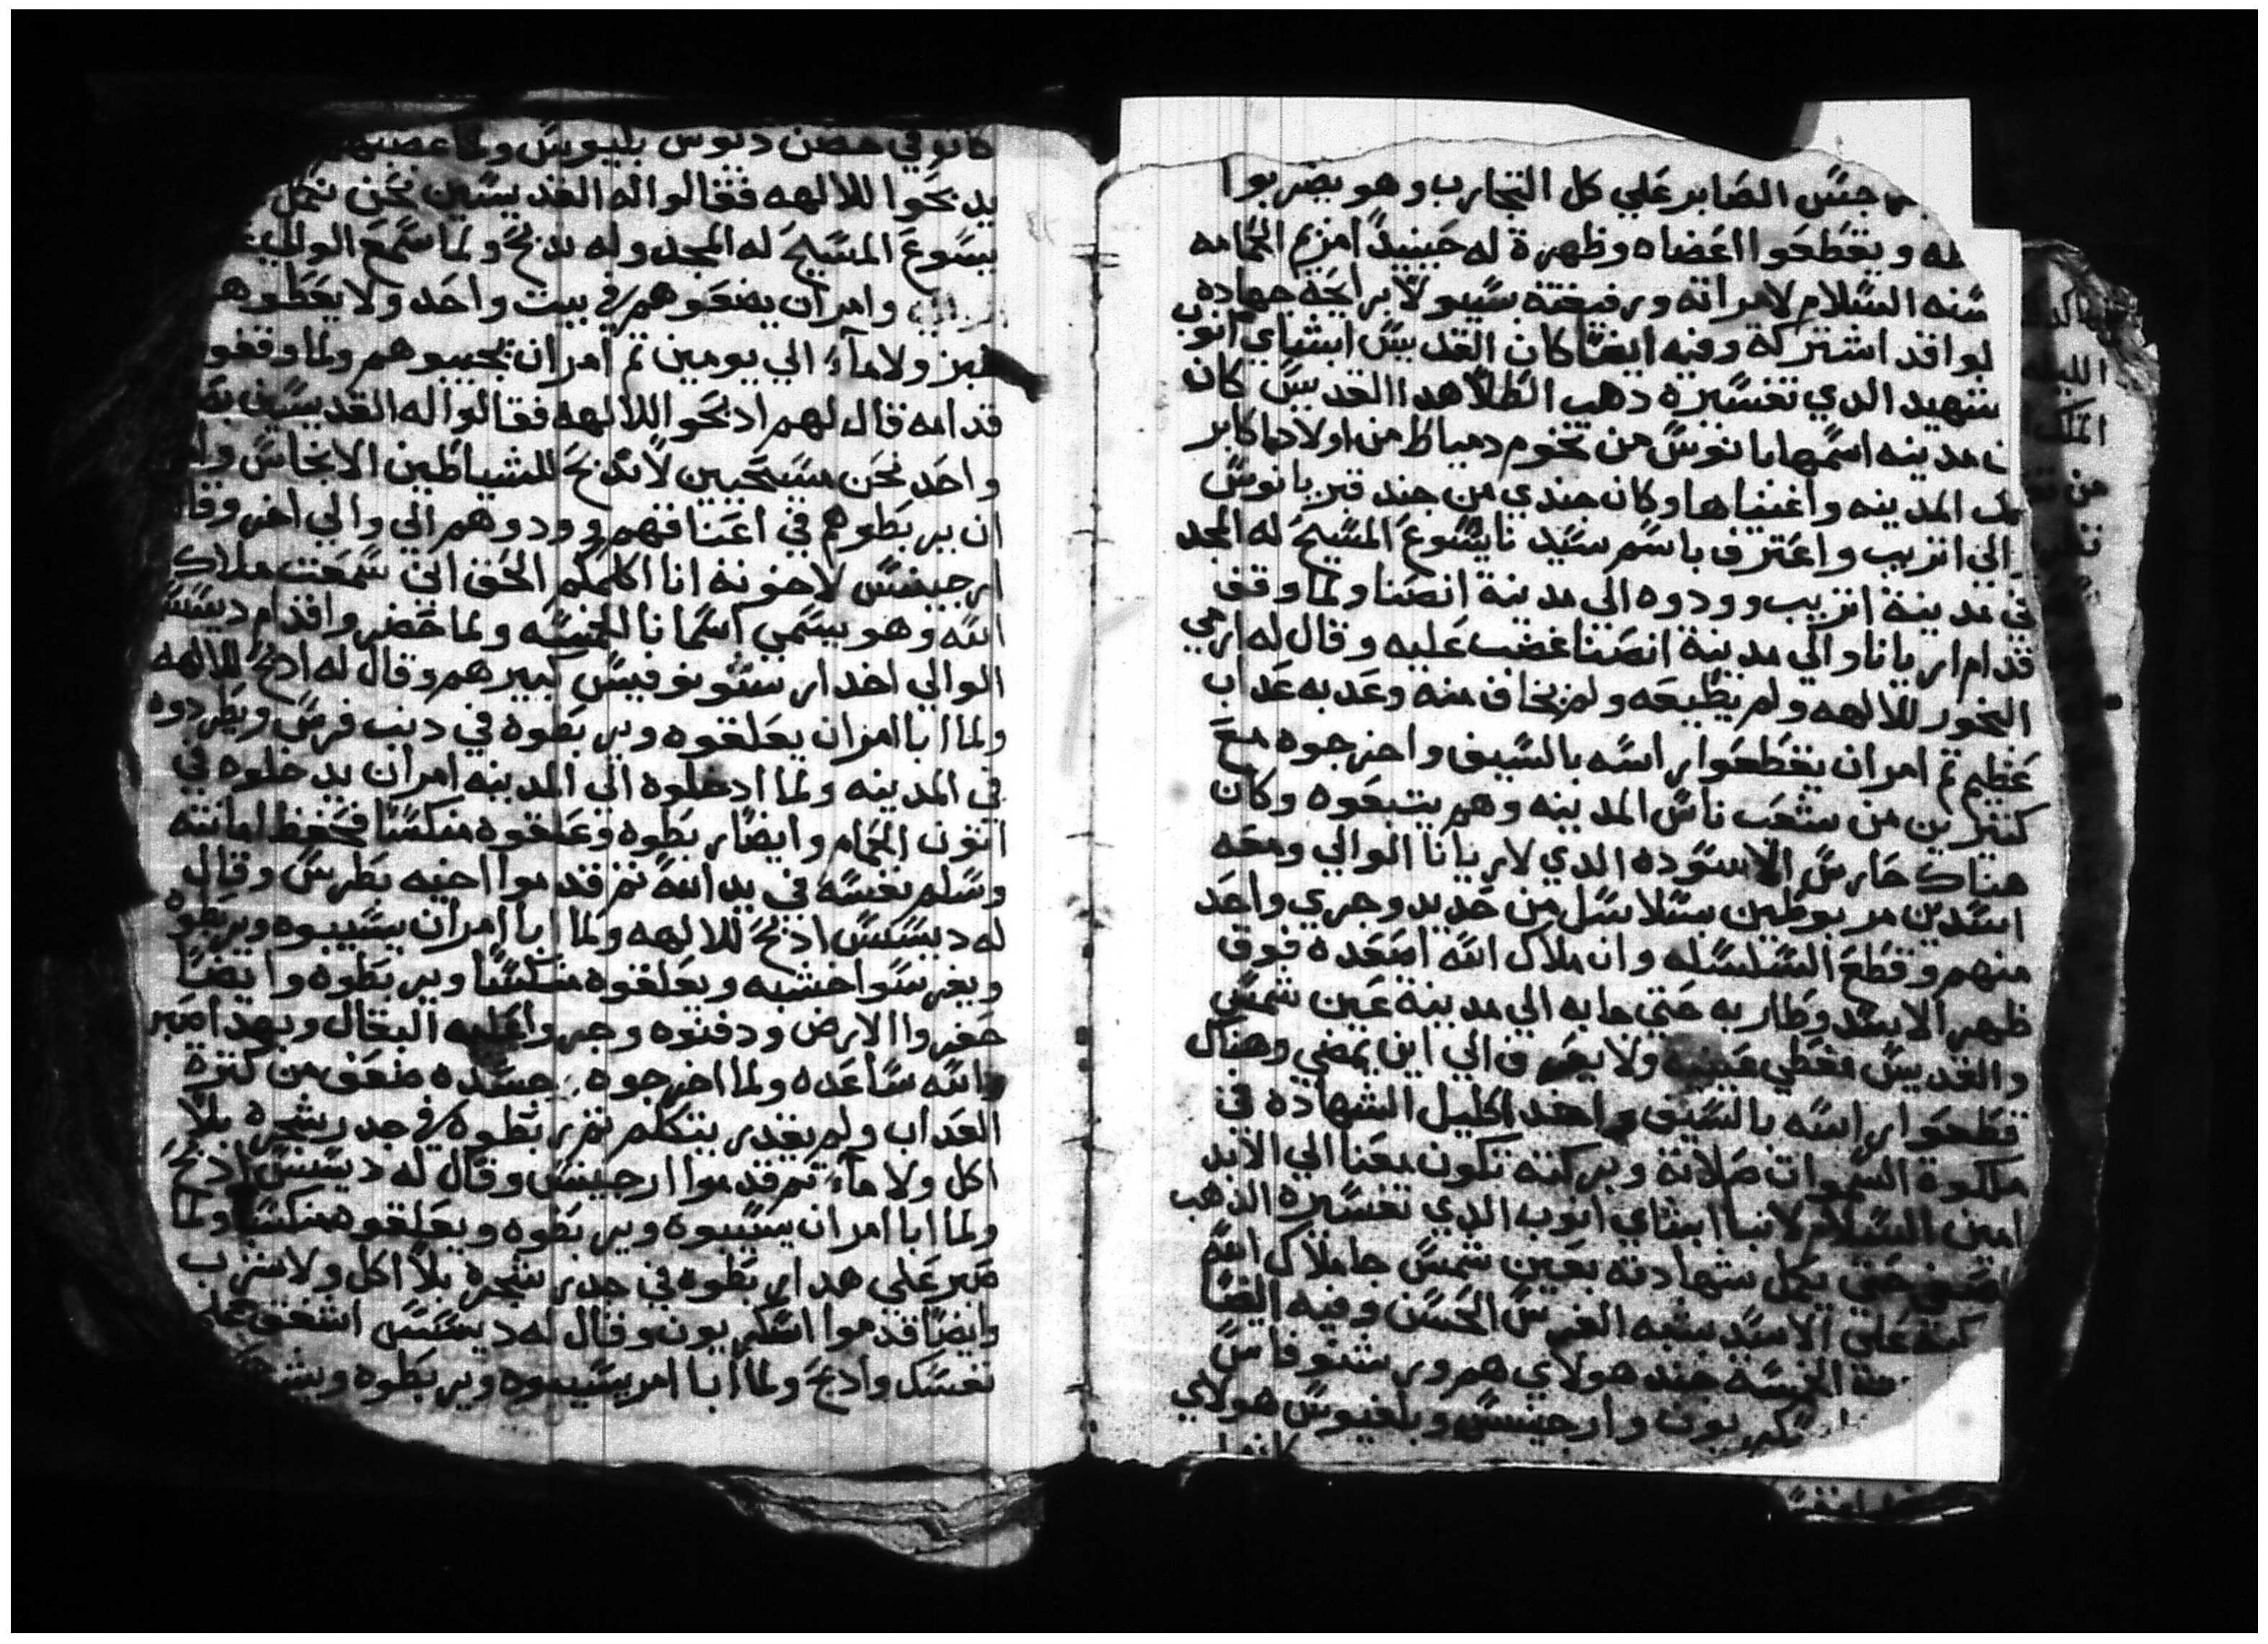 جس الصابر علي كل التجارب وهو يضربوا
له ويقطعوا اعضاه وظهرة له حينيد امزيم الحمامه
سنه السلام لامراته ورفيقته سيبولا برايحة جهاده
لوا قد اشتركة وفيه ايضا كان القديس ابشاي انوب
شهيد الدي تفسيره دهب الطلا هدا القديس كان
مدينه اسمها بانوس من تخوم دمياط من اولاد اكابر
تلك المدينه واغنياها وكان جندي من جند قبريانوس
الي اتريب واعترف باسم سيدنا يسوع المسيح له المجد
في مدينة اتريب وودوه الي مدينة انصنا ولما وقف
قدام اريانا والي مدينة انصنا غضب عليه وقال له ارمي
البخور للالهه ولم يطيعه ولم يخاف منه وعدبه عداب
عظيم تم امر ان يقطعوا راسه بالسيف واخرجوه مع
كتيرين من شعب ناس المدينه وهم يتبعوه وكان
هناك حارس الاسوده الدي لاريانا الوالي ومعه
اسدين مربوطين بسلاسل من حديد وجري واحد
منهم وقطع السلسله وان ملاك الله اصعده فوق
ظهر الاسد وطار به حتي جابه الي مدينة عين شمس
والقديس مغطي عينيه ولا يعرف الي اين يمضي وهناك
قطعوا راسه بالسيف واخد اكليل الشهاده في
ملكوة السموات صلاته وبركته تكون معنا الي الابد
امين السلام لانبا ابشاي انوب الدي تفسيره الدهب
حتي يكمل شهادته بعين شمس جا ملاك الله
علي الاسد يشبه الفرس الحسن وفيه ايضا
الخمسة جند هولاي هم ورشنوفاس
بون وارجينس وبلفيوس هولاي
كانوا
كانوا في حصن دنوس بليوس ولما غصبهم
يدبحوا للالهه فقالوا له القديسين نحن نحمل
يسوع المسيح له المجد وله ندبح ولما سمع الوالي
وامر ان يضعوهم في بيت واحد ولا يعطوهم
خبز ولا ماء الي يومين تم امر ان يجيبوهم ولما وقفوا
قدامه قال لهم ادبحوا للالهه فقالوا له القديسين
واحد نحن مسيحيين لا ندبح للشياطين الانجاس
ان يربطوهم في اعناقهم وودوهم الي والي اخر وقال
ارجينس لاخوته انا اكلمكم الحق اني سمعت ملاك
الله وهو يسمي اسمانا الخمسه ولما حضروا قدام ديسس
الوالي اخد ارسنونوفيس كبيرهم وقال له ادبح للالهه
ولما ابا امر ان يعلقوه ويربطوه في دنب فرس ويطردوه
في المدينه ولما ادخلوه الي المدينه امر ان يدخلوه في
اتون الحمام وايضا ربطوه وعلقوه منكسا فحفظ امانته
وسلم نفسه في يد الله تم قدموا اخيه بطرس وقال
له ديسس ادبح للالهه ولما ابا امر ان يسيبوه ويربطوه
ويغرسوا خشبه ويعلقوه منكسا ويربطوه وايضا
حفروا الارض ودفنوه وجروا عليه البقال وبهدا صبر
والله ساعده ولما اخرجوه جسده ضعف من كترة
العداب ولم يقدر يتكلم تم ربطوه في جدر شجره بلا
اكل ولا ماء تم قدموا ارجينس وقال له ديسس ادبح
ولما ابا امر ان يسيبوه ويربطوه ويعلقوه منكسا ولما
صبر علي هدا ربطوه في جدر شجره بلا اكل ولا شرب
وايضا قدموا اسكيريون وقال له ديسس اشفق علي
نفسك وادبح ولما ابا امر يسيبوه ويربطوه